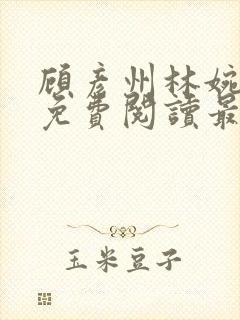 顾彦州林婉
免費閱讀最
玉米豆子